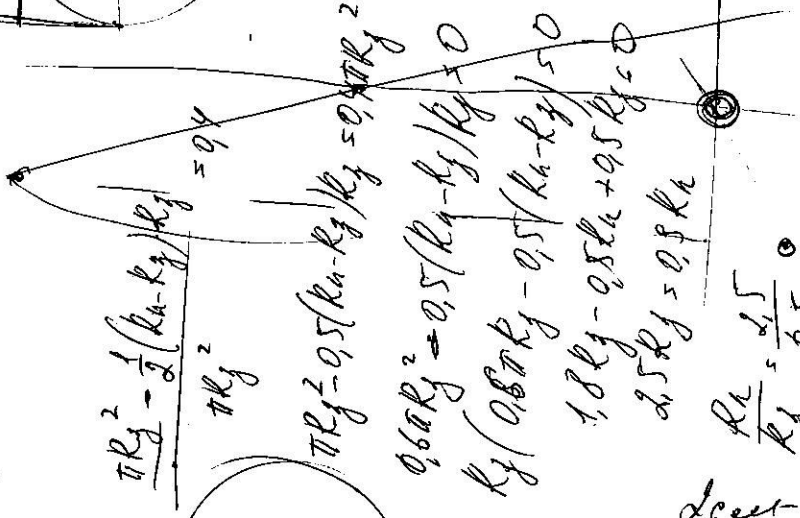 πRз² - 1/2 (Rл-Rз)Rз / πRз² = 0,4
πRз² - 0,5(Rл-Rз)Rз = 0,4πRз²
0,6πRз² - 0,5(Rл-Rз)Rз = 0
Rз(0,6πRз - 0,5(Rл-Rз) = 0
1,8Rз - 0,5Rл + 0,5Rз = 0
2,5Rз = 0,5Rл
Rл / Rз = 2,5 / 0,5